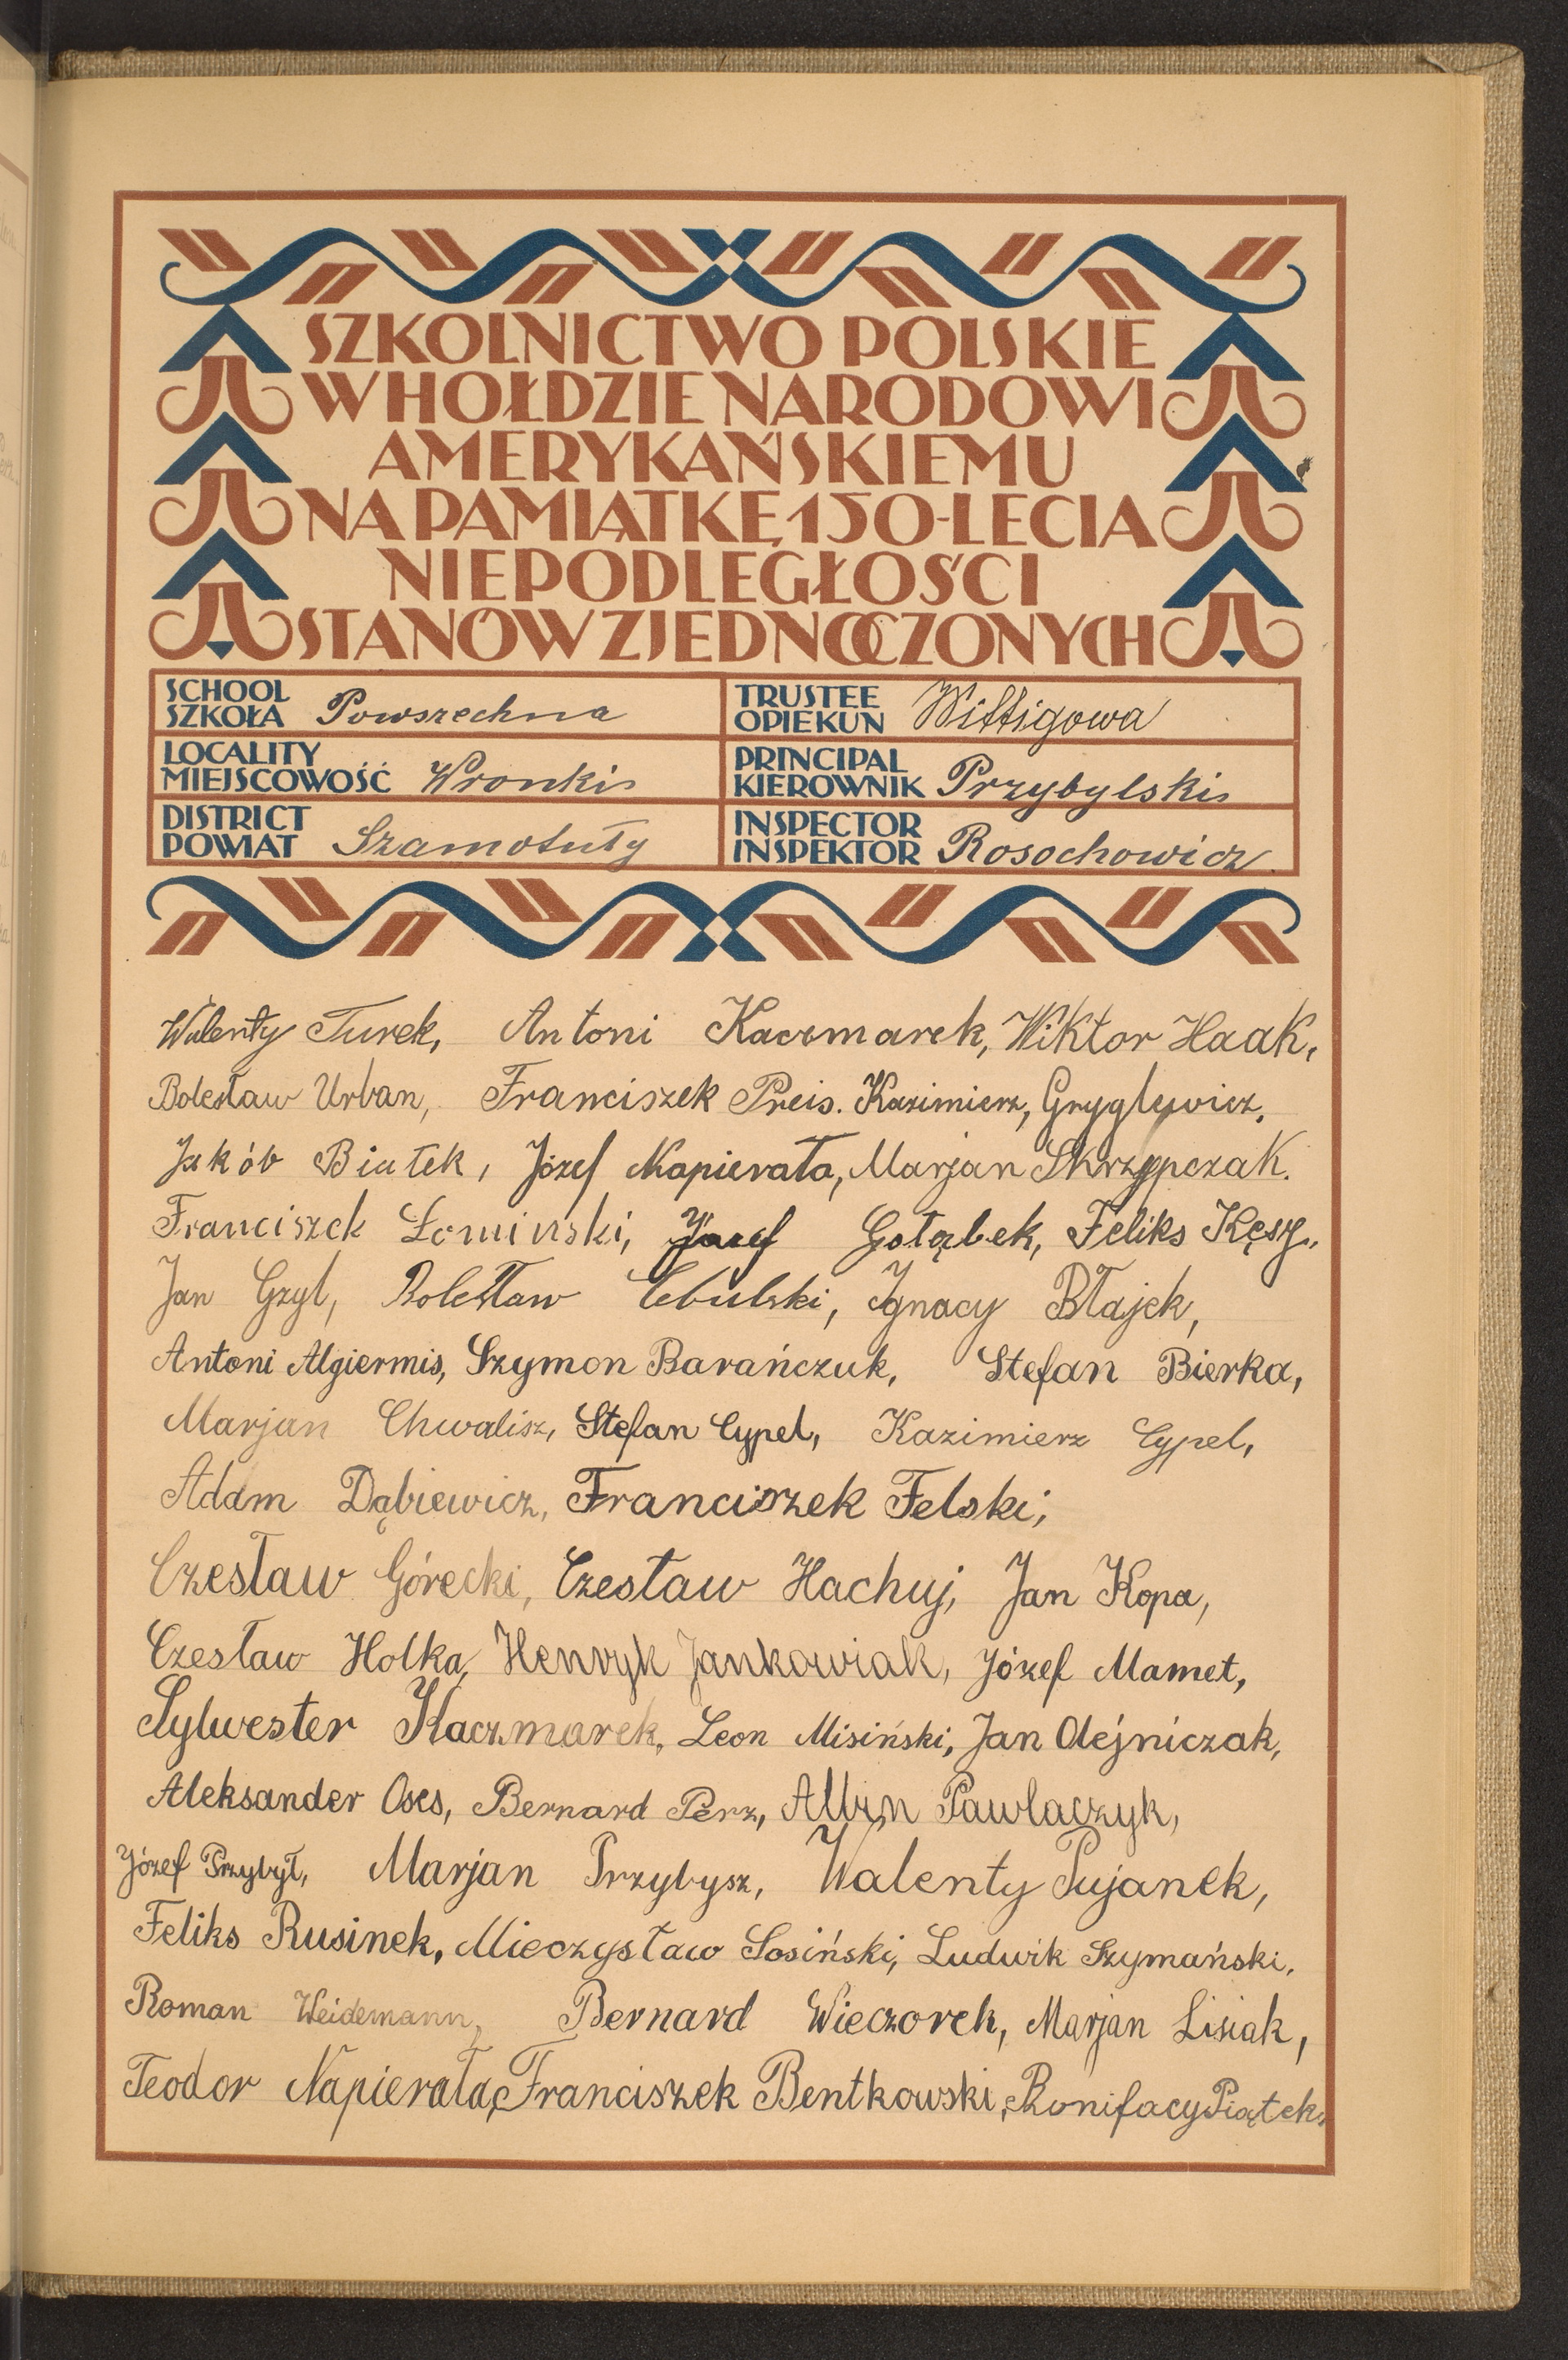 SZKOLNICTWO POLSKIE
W HOŁDZIE NARODOWI
AMERYKAŃSKIEMU
NA PAMIĄTKĘ 150-LECIA
NIEPODLEGŁOŚCI
STANÓW ZJEDNOCZONYCH
SCHOOL
SZKOŁA Powszechna
TRUSTEE
OPIEKUN Wittigowa
LOCALITY
MIEJSCOWOŚĆ Wronki
PRINCIPAL
KIEROWNIK Przybylski
DISTRICT
POWIAT Szamotuły
INSPECTOR
INSPEKTOR Rosochowicz
Walenty Turek, Antoni Kaczmarek, Wiktor Haak,
Bolesław Urban, Franciszek Preis. Kazimierz, Gryglewicz,
Jakób Białek, Józef Napierała, Marjan Skrzypczak.
Franciszek Łomiński, Józef Gołąbek, Feliks Kęsy,
Jan Gzyl, Bolesław Cebulski, Ignacy Błajek,
Antoni Algiermis, Szymon Barańczuk, Stefan Bierka,
Marjan Chwalisz, Stefan Cypel, Kazimierz Cypel,
Adam Dąbiewicz, Franciszek Felski,
Czesław Górecki, Czesław Hachuj, Jan Kopa,
Czesław Holka, Henryk Jankowiak, Józef Mamet,
Sylwester Kaczmarek, Leon Misiński, Jan Olejniczak,
Aleksander Oses, Bernard Perz, Albin Pawlaczyk,
Józef Przybył, Marjan Przybysz, Walenty Pujanek,
Feliks Rusinek, Mieczysław Sosiński, Ludwik Szymański,
Roman Weidemann, Bernard Wieczorek, Marjan Lisiak,
Teodor Napierała, Franciszek Bentkowski, Bonifacy Piątek,